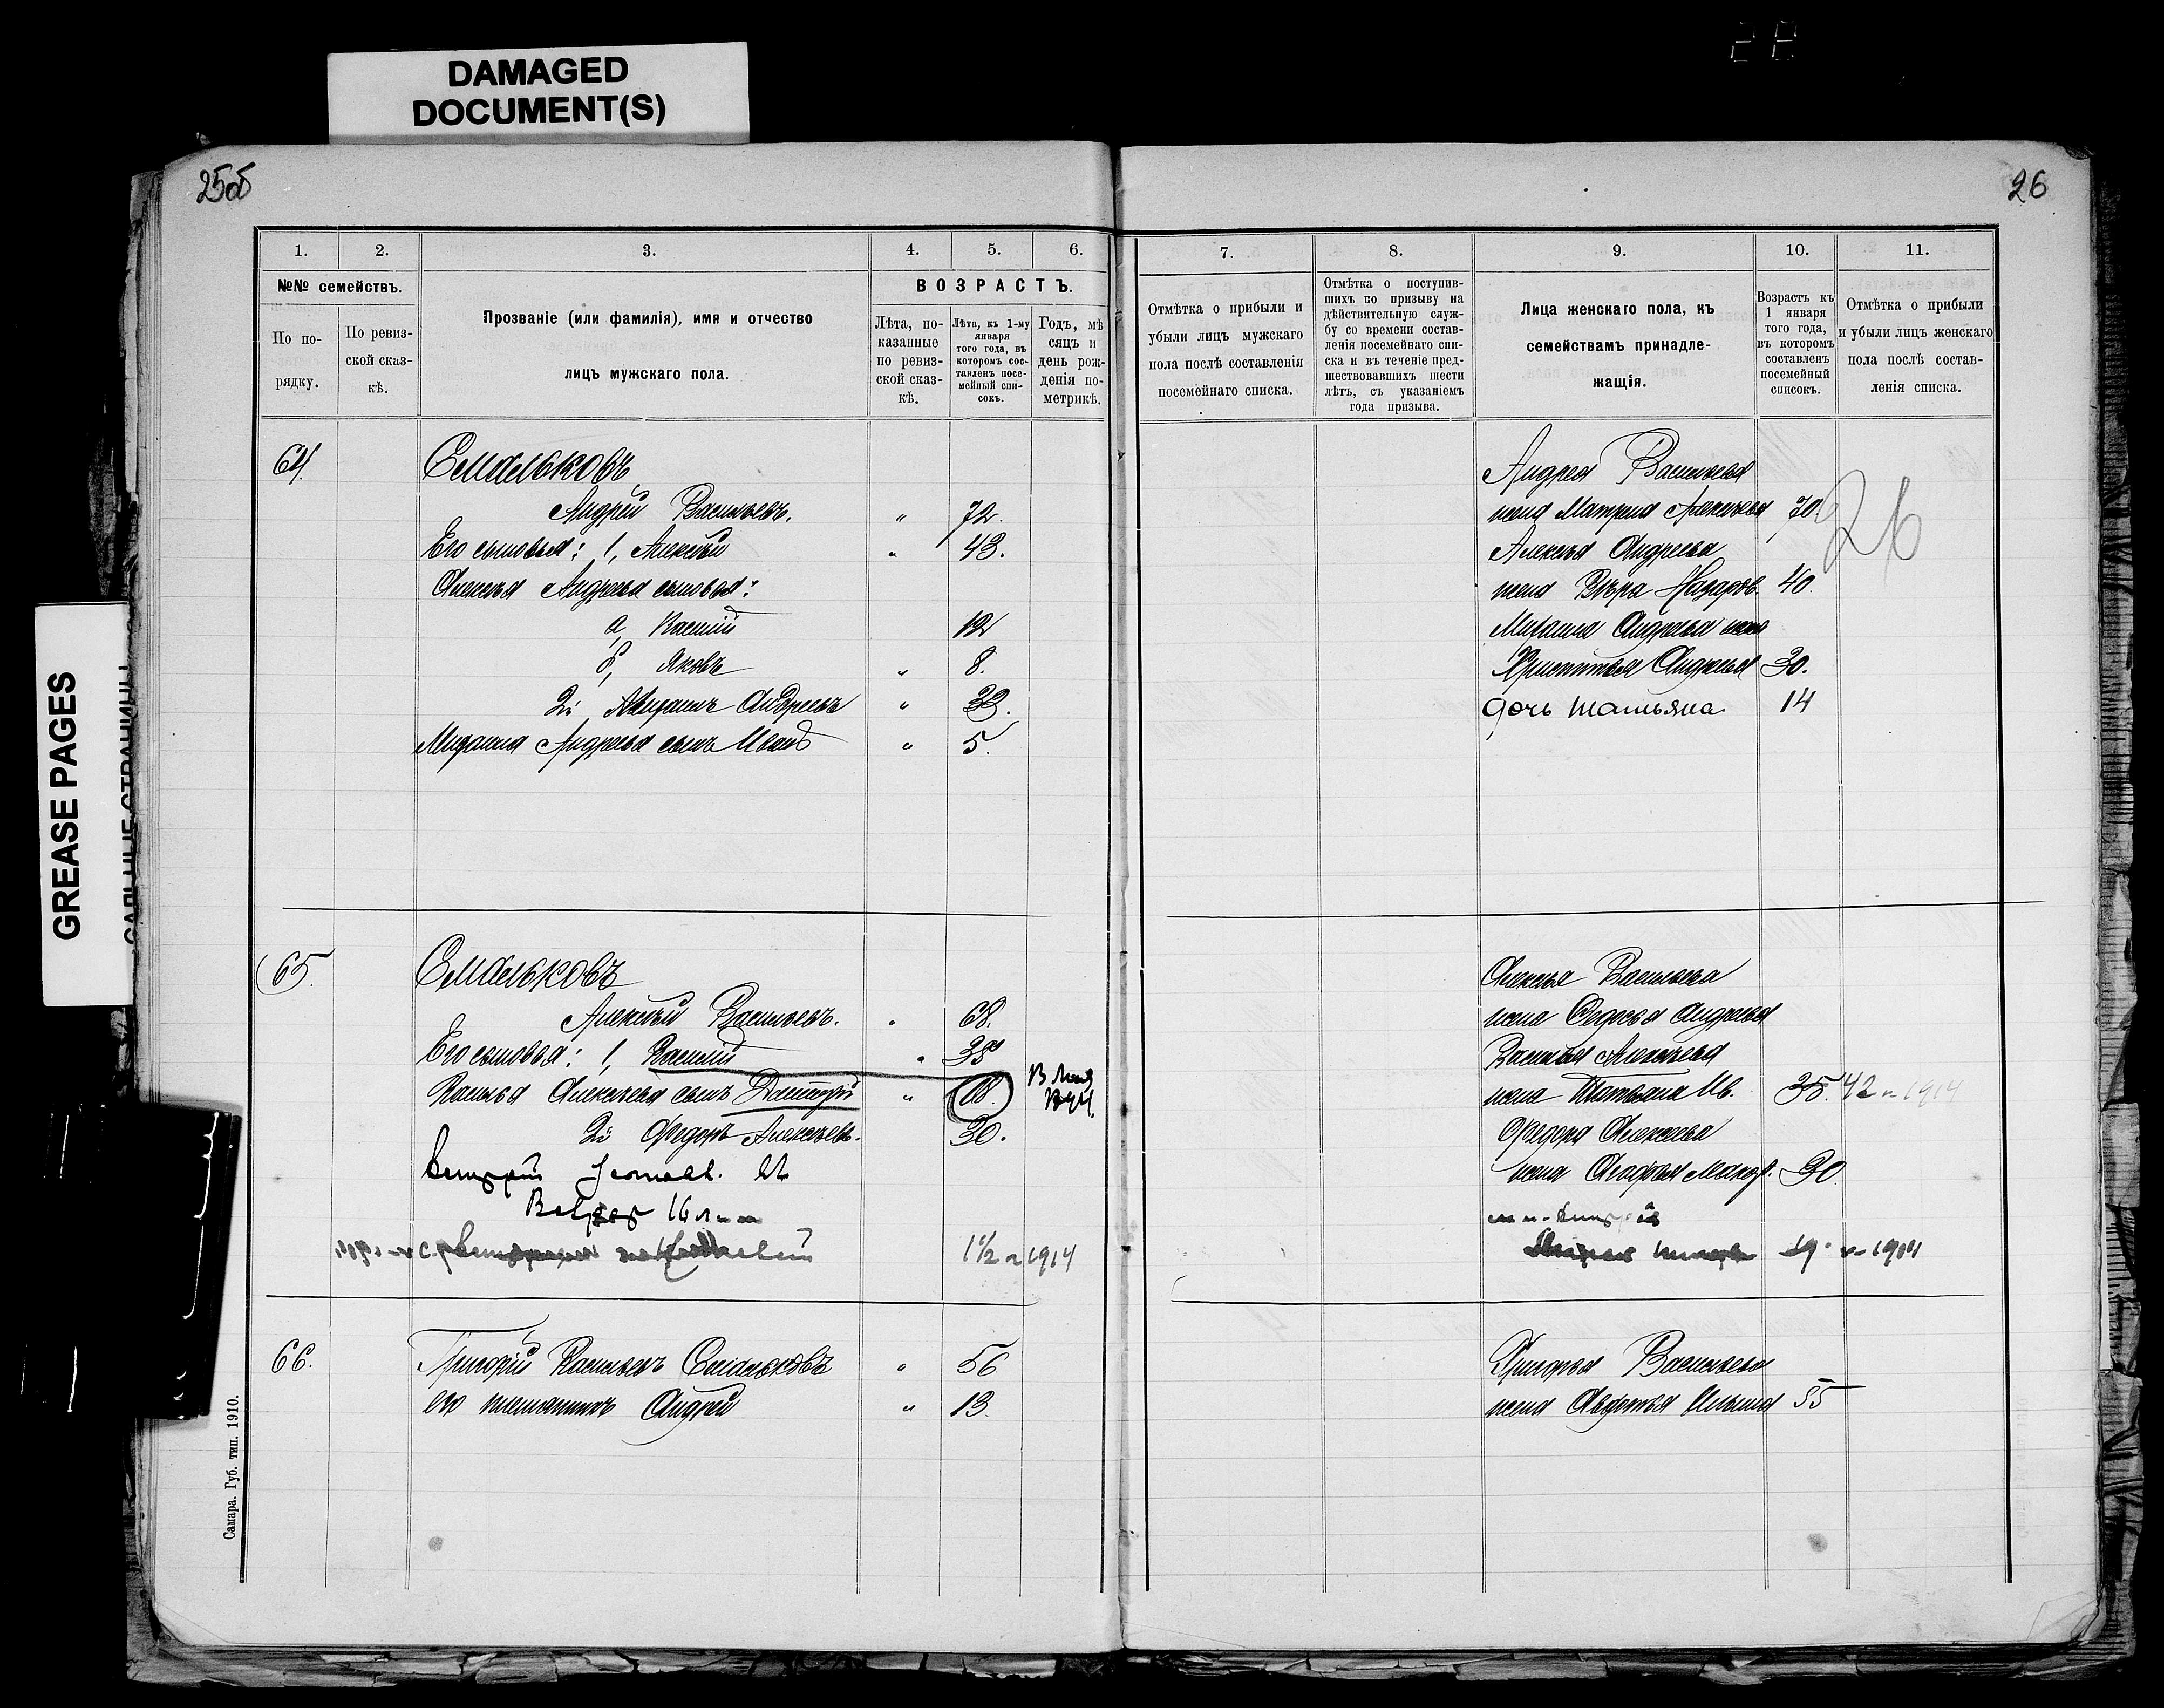 DAMAGED
DOCUMENT(S)
GREASE PAGES
25об
26
1.
2.
3.
4.
5.
6.
№№ семействъ.
По по-
рядку.
По ревиз-
ской сказ-
кѣ.
Прозваніе (или фамилія), имя и отчество
лицъ мужскаго пола.
ВОЗРАСТЪ.
Лѣта, по-
казанные
по ревиз-
ской сказ-
кѣ.
Лѣта, къ 1-му
января
того года, въ
которомъ сос-
тавленъ посе-
мейный спи-
сокъ.
Годъ, мѣ
сяцъ и
день рож-
денія по-
метрикѣ.
64.
Смальковъ
Андрей Васильевъ. " 72.
Его сыновья: 1, Алексѣй " 43.
Алексѣя Андреева сыновья:
а, Василій 12
б, Яковъ " 8.
2й Михаилъ Андреевъ " 33.
Михаила Андреева сынъ Иванъ " 5.
65.
Смальковъ
Алексѣй Васильевъ. " 68.
Его сыновья: 1, Василій " 38
Василья Алексѣева сынъ Дмитрій " 18.
2й Федоръ Алексѣевъ. 30.
16
1½ 1914
66.
Григорій Васильевъ Смальковъ " 56
его племянникъ Андрей " 13.
Самара. Губ. тип. 1910.
7.
8.
9.
10.
11.
Отмѣтка о прибыли и
убыли лицъ мужскаго
пола послѣ составленія
посемейнаго списка.
Отмѣтка о поступив-
шихъ по призыву на
дѣйствительную служ-
бу со времени состав-
ленія посемейнаго спи-
ска и въ теченіе пред-
шествовавшихъ шести
лѣтъ, съ указаніемъ
года призыва.
Лица женскаго пола, къ
семействамъ принадле-
жащія.
Возрастъ къ
1 января
того года,
въ которомъ
составленъ
посемейный
списокъ.
Отмѣтка о прибыли
и убыли лицъ женскаго
пола послѣ состав-
ленія списка.
Андрея Васильева
жена Матрена Алексѣева 70.
26
Алексѣя Андреева
жена Вѣра Назаров. 40.
Михаила Андреева жена
Христинья Андреева 30.
дочь Татьяна 14
Алексѣя Васильева
жена Федосья Андреева
Василья Алексѣева
жена Татьяна Ив. 35. 42 1914
Федора Алексѣева
жена Агафья Макар. 30.
19 1914
Григорья Васильева
жена Авдотья Ильина 55